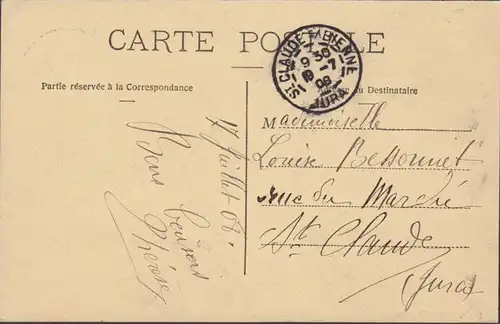 CARTE POSTALE
ST CLAUDE BIENNE
9 30
-7
08
JURA
Partie réservée à la Correspondance
du Destinataire
17 Juillet 08.
Bons
baisers
Mademoiselle
Louise Bessonnet
rue du Marché
St Claude
(Jura)